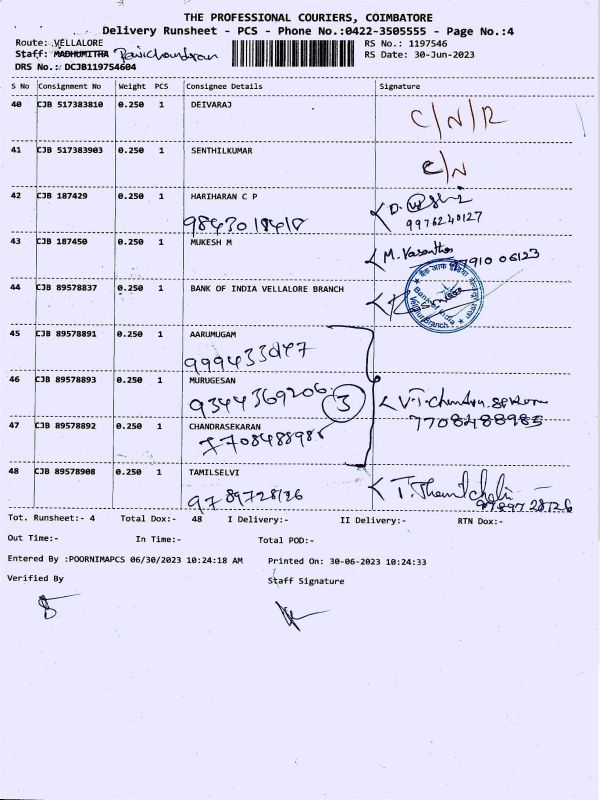 THE PROFESSIONAL COURIERS, COIMBATORE
Delivery Runsheet - PCS - Phone No.:0422-3505555 - Page No.:4
Route: VELLALORE
RS No.: 1197546
Staff: MADHUMITHA Ravichandran
RS Date: 30-Jun-2023
DRS No.: DCJB119754604
S No Consignment No Weight PCS Consignee Details Signature
40 CJB 517383810 0.250 1 DEIVARAJ C/N/R
41 CJB 517383903 0.250 1 SENTHILKUMAR C/N
42 CJB 187429 0.250 1 HARIHARAN C P D.
9976240127
43 CJB 187450 0.250 1 MUKESH M M. Vasantha
7910 06123
44 CJB 89578837 0.250 1 BANK OF INDIA VELLALORE BRANCH
बैंक ऑफ इंडिया
Bank of India
45 CJB 89578891 0.250 1 AARUMUGAM
46 CJB 89578893 0.250 1 MURUGESAN
9344369206 3 V.T. Chandrasekaran
7708488985
47 CJB 89578892 0.250 1 CHANDRASEKARAN
7708488985
48 CJB 89578908 0.250 1 TAMILSELVI
9789728126 T. Thamil Chelvi
9789728126
Tot. Runsheet:- 4 Total Dox:- 48 I Delivery:- II Delivery:- RTN Dox:-
Out Time:- In Time:- Total POD:-
Entered By :POORNIMAPCS 06/30/2023 10:24:18 AM Printed On: 30-06-2023 10:24:33
Verified By Staff Signature